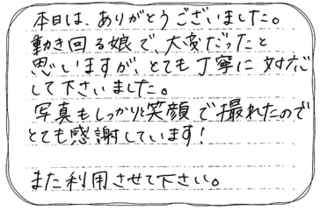 本日は、ありがとうございました。
動き回る娘で、大変だったと
思いますが、とても丁寧に対応
して下さいました。
写真もしっかりと笑顔で撮れたので
とても感謝しています!
また利用させて下さい。